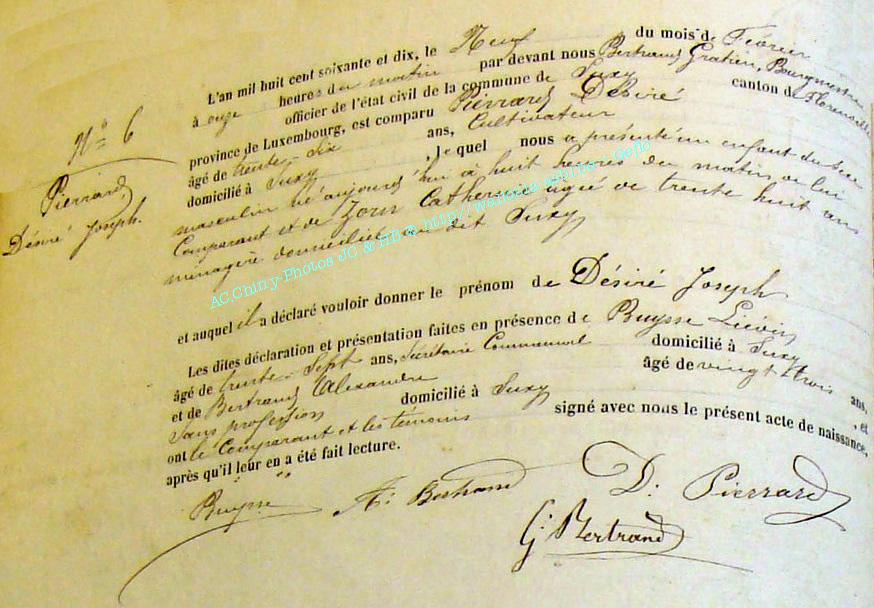 N° 6
Pierrard
Désiré Joseph.
L'an mil huit cent soixante et dix, le Neuf du mois de Février
à onze heures du matin par devant nous Bertrand Gratien, Bourgmestre
officier de l'état civil de la commune de Suxy canton de Florenville
province de Luxembourg, est comparu Pierrard Désiré
âgé de trente-six ans, Cultivateur
domicilié à Suxy, lequel nous a présenté un enfant du sexe
masculin né aujourd'hui à huit heures du matin, de lui
Comparant et de Zorn Catherine agée de trente huit ans
ménagère domiciliée au dit Suxy
et auquel il a déclaré vouloir donner le prénom de Désiré Joseph
Les dites déclaration et présentation faites en présence de Buysse Liévin
âgé de trente-Sept ans, Secrétaire Communal domicilié à Suxy
et de Bertrand Alexandre âgé de vingt trois ans,
Sans profession domicilié à Suxy, et
ont le Comparant et les témoins signé avec nous le présent acte de naissance,
après qu'il leur en a été fait lecture.
Buysse
A: Bertrand
D: Pierrard
G: Bertrand
AC.Chiny-Photos JC & HB @ http//